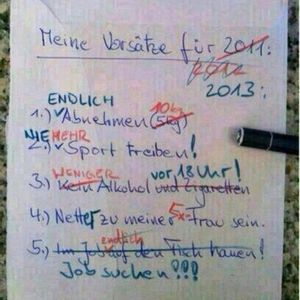 Meine Vorsätze für 2011:
2012
2013:
ENDLICH 10kg
1.) Abnehmen (5kg)
NIE MEHR
2.) Sport treiben!
WENIGER vor 18 Uhr!
3.) Kein Alkohol und Zigaretten
4.) Netter zu meiner Ex-Frau sein.
endlich
5.) Im Job auf den Tisch hauen!
Job suchen!!!